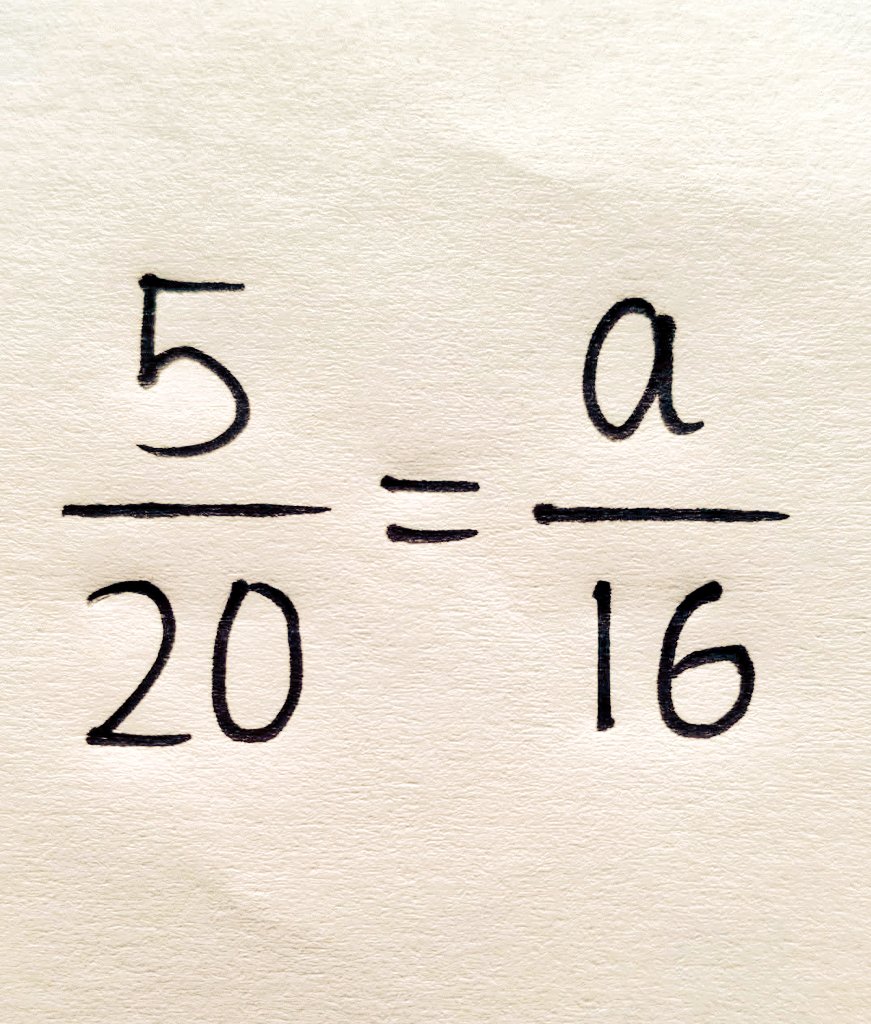 5/20 = a/16